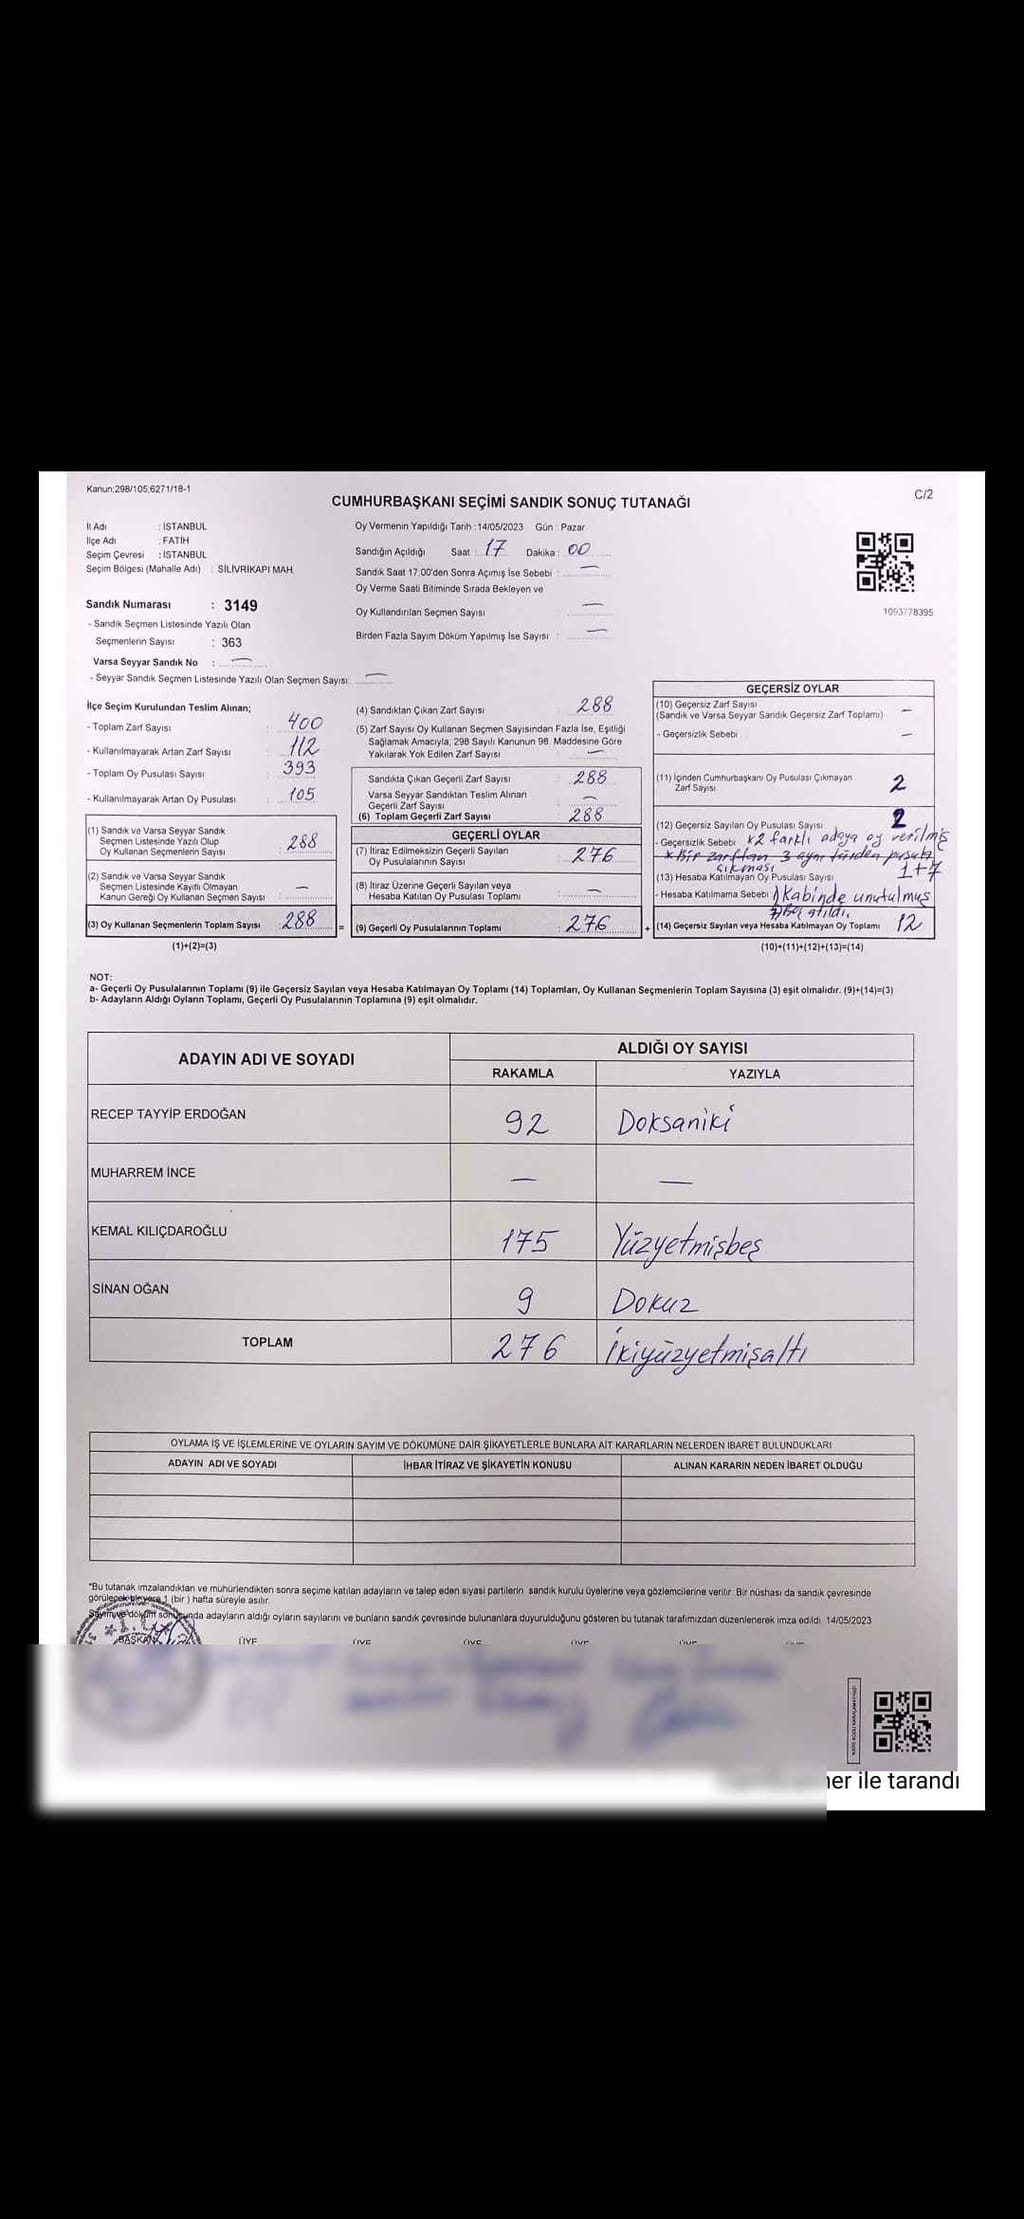 Kanun;298/105;6271/18-1
C/2
CUMHURBAŞKANI SEÇİMİ SANDIK SONUÇ TUTANAĞI
İl Adı : İSTANBUL
İlçe Adı : FATİH
Seçim Çevresi : İSTANBUL
Seçim Bölgesi (Mahalle Adı) : SİLİVRİKAPI MAH.
Oy Vermenin Yapıldığı Tarih : 14/05/2023 Gün : Pazar
Sandığın Açıldığı Saat : 17 Dakika : 00
Sandık Saat 17:00'den Sonra Açımış İse Sebebi : —
Oy Verme Saati Bitiminde Sırada Bekleyen ve
Oy Kullandırılan Seçmen Sayısı —
Birden Fazla Sayım Döküm Yapılmış İse Sayısı : —
1093778395
Sandık Numarası : 3149
- Sandık Seçmen Listesinde Yazılı Olan
Seçmenlerin Sayısı : 363
Varsa Seyyar Sandık No : —
- Seyyar Sandık Seçmen Listesinde Yazılı Olan Seçmen Sayısı: —
İlçe Seçim Kurulundan Teslim Alınan;
- Toplam Zarf Sayısı : 400
- Kullanılmayarak Artan Zarf Sayısı : 112
- Toplam Oy Pusulası Sayısı : 393
- Kullanılmayarak Artan Oy Pusulası : 105
(1) Sandık ve Varsa Seyyar Sandık
Seçmen Listesinde Yazılı Olup
Oy Kullanan Seçmenlerin Sayısı : 288
(2) Sandık ve Varsa Seyyar Sandık
Seçmen Listesinde Kayıtlı Olmayan
Kanun Gereği Oy Kullanan Seçmen Sayısı : —
(3) Oy Kullanan Seçmenlerin Toplam Sayısı : 288 =
(1)+(2)=(3)
(4) Sandıktan Çıkan Zarf Sayısı : 288
(5) Zarf Sayısı Oy Kullanan Seçmen Sayısından Fazla İse, Eşitliği
Sağlamak Amacıyla, 298 Sayılı Kanunun 98. Maddesine Göre
Yakılarak Yok Edilen Zarf Sayısı : —
Sandıkta Çıkan Geçerli Zarf Sayısı : 288
Varsa Seyyar Sandıktan Teslim Alınan
Geçerli Zarf Sayısı : —
(6) Toplam Geçerli Zarf Sayısı : 288
GEÇERLİ OYLAR
(7) İtiraz Edilmeksizin Geçerli Sayılan
Oy Pusulalarının Sayısı : 276
(8) İtiraz Üzerine Geçerli Sayılan veya
Hesaba Katılan Oy Pusulası Toplamı : —
(9) Geçerli Oy Pusulalarının Toplamı : 276 +
GEÇERSİZ OYLAR
(10) Geçersiz Zarf Sayısı
(Sandık ve Varsa Seyyar Sandık Geçersiz Zarf Toplamı) —
- Geçersizlik Sebebi : —
(11) İçinden Cumhurbaşkanı Oy Pusulası Çıkmayan
Zarf Sayısı : 2
(12) Geçersiz Sayılan Oy Pusulası Sayısı : 2
- Geçersizlik Sebebi x2 farklı adaya oy verilmiş
x Bir zarftan 3 aynı türden pusula
çıkması
(13) Hesaba Katılmayan Oy Pusulası Sayısı : 1+7
- Hesaba Katılmama Sebebi 1) Kabinde unutulmuş
7) Boş atıldı.
(14) Geçersiz Sayılan veya Hesaba Katılmayan Oy Toplamı 12
(10)+(11)+(12)+(13)=(14)
NOT:
a- Geçerli Oy Pusulalarının Toplamı (9) ile Geçersiz Sayılan veya Hesaba Katılmayan Oy Toplamı (14) Toplamları, Oy Kullanan Seçmenlerin Toplam Sayısına (3) eşit olmalıdır. (9)+(14)=(3)
b- Adayların Aldığı Oyların Toplamı, Geçerli Oy Pusulalarının Toplamına (9) eşit olmalıdır.
ADAYIN ADI VE SOYADI
ALDIĞI OY SAYISI
RAKAMLA YAZIYLA
RECEP TAYYİP ERDOĞAN 92 Doksaniki
MUHARREM İNCE — —
KEMAL KILIÇDAROĞLU 175 Yüzyetmişbeş
SİNAN OĞAN 9 Dokuz
TOPLAM 276 İkiyüzyetmişaltı
OYLAMA İŞ VE İŞLEMLERİNE VE OYLARIN SAYIM VE DÖKÜMÜNE DAİR ŞİKAYETLERLE BUNLARA AİT KARARLARIN NELERDEN İBARET BULUNDUKLARI
ADAYIN ADI VE SOYADI İHBAR İTİRAZ VE ŞİKAYETİN KONUSU ALINAN KARARIN NEDEN İBARET OLDUĞU
*Bu tutanak imzalandıktan ve mühürlendikten sonra seçime katılan adayların ve talep eden siyasi partilerin sandık kurulu üyelerine veya gözlemcilerine verilir. Bir nüshası da sandık çevresinde
görülecek bir yere 1 (bir) hafta süreyle asılır.
Sayım ve döküm sonucunda adayların aldığı oyların sayılarını ve bunların sandık çevresinde bulunanlara duyurulduğunu gösteren bu tutanak tarafımızdan düzenlenerek imza edildi. 14/05/2023
BAŞKAN ÜYE ÜYE ÜYE ÜYE ÜYE ÜYE
ner ile tarandı